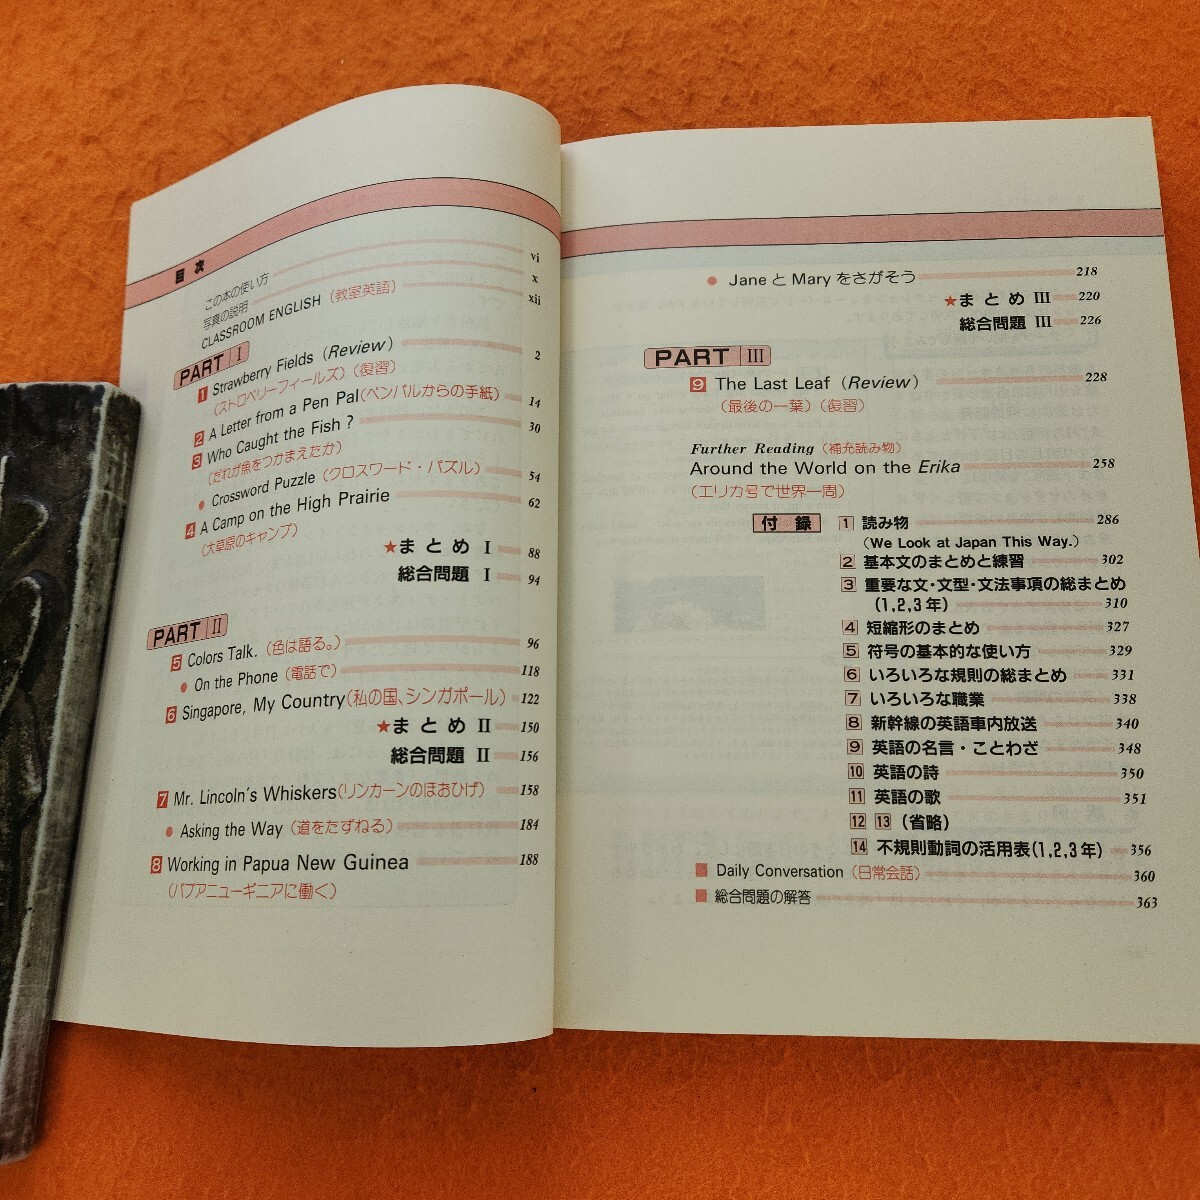 目次
この本の使い方 vi
写真の説明 x
CLASSROOM ENGLISH (教室英語) xii
PART I
1 Strawberry Fields (Review) 2
(ストロベリーフィールズ) (復習)
2 A Letter from a Pen Pal (ペンパルからの手紙) 14
3 Who Caught the Fish ? 30
(だれが魚をつかまえたか)
● Crossword Puzzle (クロスワード・パズル) 54
4 A Camp on the High Prairie 62
(大草原のキャンプ)
★まとめ I 88
総合問題 I 94
PART II
5 Colors Talk. (色は語る。) 96
● On the Phone (電話で) 118
6 Singapore, My Country (私の国、シンガポール) 122
★まとめ II 150
総合問題 II 156
7 Mr. Lincoln's Whiskers (リンカーンのほおひげ) 158
● Asking the Way (道をたずねる) 184
8 Working in Papua New Guinea 188
(パプアニューギニアに働く)
● Jane と Mary をさがそう 218
★まとめ III 220
総合問題 III 226
PART III
9 The Last Leaf (Review) 228
(最後の一葉) (復習)
Further Reading (補充読み物)
Around the World on the Erika 258
(エリカ号で世界一周)
付録 1 読み物 286
(We Look at Japan This Way.)
2 基本文のまとめと練習 302
3 重要な文・文型・文法事項の総まとめ
(1,2,3年) 310
4 短縮形のまとめ 327
5 符号の基本的な使い方 329
6 いろいろな規則の総まとめ 331
7 いろいろな職業 338
8 新幹線の英語車内放送 340
9 英語の名言・ことわざ 348
10 英語の詩 350
11 英語の歌 351
12 13 (省略)
14 不規則動詞の活用表(1,2,3年) 356
■ Daily Conversation (日常会話) 360
■ 総合問題の解答 363